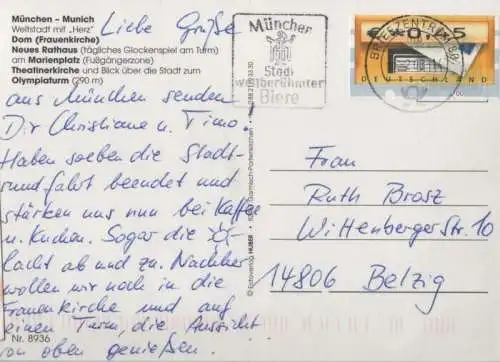 München – Munich
Weltstadt mit „Herz"
Dom (Frauenkirche)
Neues Rathaus (tägliches Glockenspiel am Turm)
am Marienplatz (Fußgängerzone)
Theatinerkirche und Blick über die Stadt zum
Olympiaturm (290 m)
Liebe Grüße
aus München senden
Dir Christiane u. Timo!
Haben soeben die Stadt-
rundfahrt beendet und
stärken uns nun bei Kaffee
u. Kuchen. Sogar die
lacht ab und zu. Nachher
wollen wir noch in die
Frauenkirche und auf
einen Turm, die Aussicht
von oben genießen.
Nr. 8936
HUBER
Garmisch-Partenkirchen
München
Stadt
weltberühmter
Biere
BRIEFZENTRUM 80
0,45
DEUTSCHLAND
Frau
Ruth Brosz
Wittenberger Str. 10
14806 Belzig